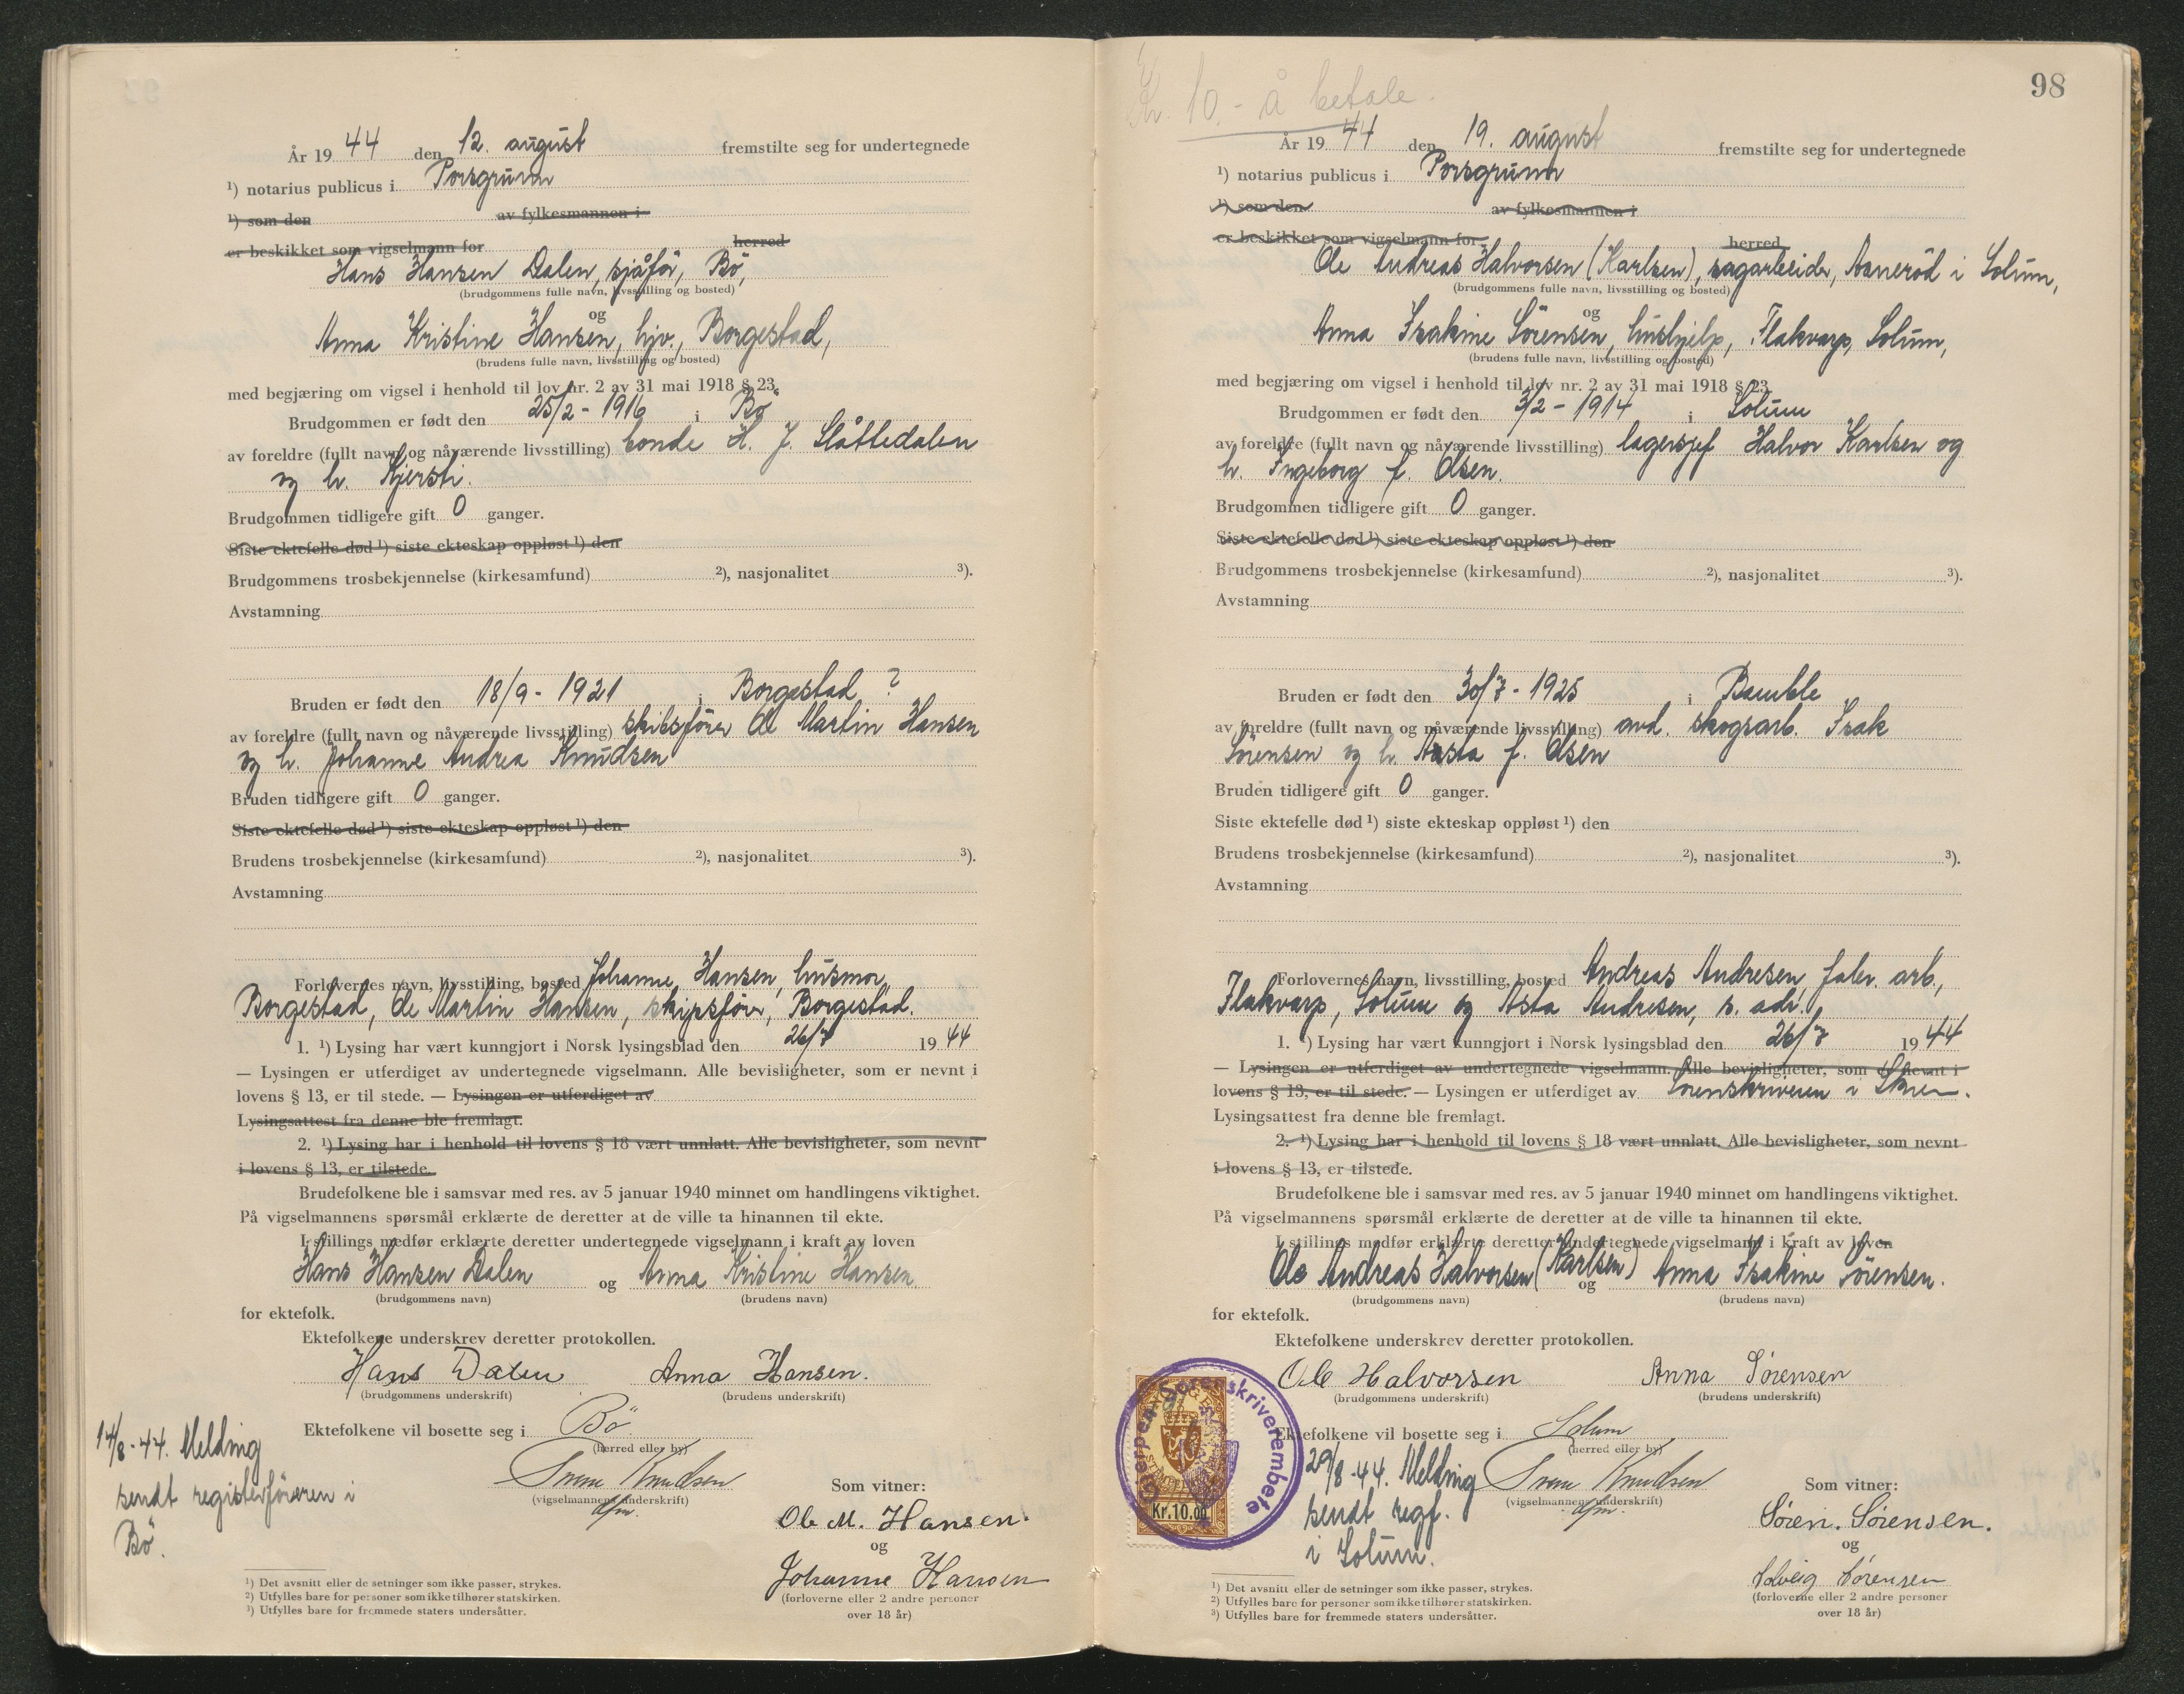 År 19 44 den 12. august fremstilte seg for undertegnede
¹) notarius publicus i Porsgrunn
¹) som den av fylkesmannen i
er beskikket som vigselmann for herred
Hans Hansen Dalen, sjåfør, Bø,
(brudgommens fulle navn, livsstilling og bosted)
og
Anna Kristine Hansen, hjv., Borgestad,
(brudens fulle navn, livsstilling og bosted)
med begjæring om vigsel i henhold til lov nr. 2 av 31 mai 1918 § 23.
Brudgommen er født den 25/2 - 1916 i Bø
av foreldre (fullt navn og nåværende livsstilling) bonde H. J. Slåttedalen
og h. Kjersti.
Brudgommen tidligere gift 0 ganger.
Siste ektefelle død ¹) siste ekteskap oppløst ¹) den
Brudgommens trosbekjennelse (kirkesamfund) ²), nasjonalitet ³).
Avstamning
Bruden er født den 18/9 - 1921 i Borgestad ?
av foreldre (fullt navn og nåværende livsstilling) skibsfører Ole Martin Hansen
og h. Johanne Andrea Knudsen
Bruden tidligere gift 0 ganger.
Siste ektefelle død ¹) siste ekteskap oppløst ¹) den
Brudens trosbekjennelse (kirkesamfund) ²), nasjonalitet ³).
Avstamning
Forlovernes navn, livsstilling, bosted Johanne Hansen, husmor,
Borgestad, Ole Martin Hansen, skipsfører, Borgestad.
1. ¹) Lysing har vært kunngjort i Norsk lysingsblad den 26/7 19 44
— Lysingen er utferdiget av undertegnede vigselmann. Alle bevisligheter, som er nevnt i
lovens § 13, er til stede. — Lysingen er utferdiget av
Lysingsattest fra denne ble fremlagt.
2. ¹) Lysing har i henhold til lovens § 18 vært unnlatt. Alle bevisligheter, som nevnt
i lovens § 13, er tilstede.
Brudefolkene ble i samsvar med res. av 5 januar 1940 minnet om handlingens viktighet.
På vigselmannens spørsmål erklærte de deretter at de ville ta hinannen til ekte.
I stillings medfør erklærte deretter undertegnede vigselmann i kraft av loven
Hans Hansen Dalen og Anna Kristine Hansen
(brudgommens navn) (brudens navn)
for ektefolk.
Ektefolkene underskrev deretter protokollen.
Hans Dalen Anna Hansen.
(brudgommens underskrift) (brudens underskrift)
Ektefolkene vil bosette seg i Bø
(herred eller by)
14/8-44. Melding
sendt registerføreren i
Bø.
Knudsen
(vigselmannens underskrift)
dfm.
Som vitner:
Ole M. Hansen.
og
Johanne Hansen
(forloverne eller 2 andre personer
over 18 år)
¹) Det avsnitt eller de setninger som ikke passer, strykes.
²) Utfylles bare for personer som ikke tilhører statskirken.
³) Utfylles bare for fremmede staters undersåtter.
98
Kr. 10.- å betale.
År 19 44 den 19. august fremstilte seg for undertegnede
¹) notarius publicus i Porsgrunn
¹) som den av fylkesmannen i
er beskikket som vigselmann for herred
Ole Andreas Halvorsen (Karlsen), sagarbeider, Asnerød i Solum,
(brudgommens fulle navn, livsstilling og bosted)
og
Anna Isakine Sørensen, hushjelp, Flakvarp, Solum,
(brudens fulle navn, livsstilling og bosted)
med begjæring om vigsel i henhold til lov nr. 2 av 31 mai 1918 § 23.
Brudgommen er født den 3/2 - 1914 i Solum
av foreldre (fullt navn og nåværende livsstilling) lagersjef Halvor Karlsen og
h. Ingeborg f. Olsen.
Brudgommen tidligere gift 0 ganger.
Siste ektefelle død ¹) siste ekteskap oppløst ¹) den
Brudgommens trosbekjennelse (kirkesamfund) ²), nasjonalitet ³).
Avstamning
Bruden er født den 30/7 - 1925 i Bamble
av foreldre (fullt navn og nåværende livsstilling) avd. skogsarb. Isak
Sørensen og h. Aasta f. Olsen
Bruden tidligere gift 0 ganger.
Siste ektefelle død ¹) siste ekteskap oppløst ¹) den
Brudens trosbekjennelse (kirkesamfund) ²), nasjonalitet ³).
Avstamning
Forlovernes navn, livsstilling, bosted Andreas Andresen, fabr. arb.,
Flakvarp, Solum og Asta Andresen, s. adr.
1. ¹) Lysing har vært kunngjort i Norsk lysingsblad den 26/7 19 44
— Lysingen er utferdiget av undertegnede vigselmann. Alle bevisligheter, som er nevnt i
lovens § 13, er til stede. — Lysingen er utferdiget av Sorenskriveren i Skien.
Lysingsattest fra denne ble fremlagt.
2. ¹) Lysing har i henhold til lovens § 18 vært unnlatt. Alle bevisligheter, som nevnt
i lovens § 13, er tilstede.
Brudefolkene ble i samsvar med res. av 5 januar 1940 minnet om handlingens viktighet.
På vigselmannens spørsmål erklærte de deretter at de ville ta hinannen til ekte.
I stillings medfør erklærte deretter undertegnede vigselmann i kraft av loven
Ole Andreas Halvorsen (Karlsen) og Anna Isakine Sørensen.
(brudgommens navn) (brudens navn)
for ektefolk.
Ektefolkene underskrev deretter protokollen.
Ole Halvorsen Anna Sørensen
(brudgommens underskrift) (brudens underskrift)
Ektefolkene vil bosette seg i Solum
(herred eller by)
Gjerpen Sorenskriverembete
Kr.10.00
29/8-44. Melding
sendt regf.
i Solum.
Knudsen
(vigselmannens underskrift)
dfm.
Som vitner:
Søren. Sørensen.
og
Solveig Sørensen
(forloverne eller 2 andre personer
over 18 år)
¹) Det avsnitt eller de setninger som ikke passer, strykes.
²) Utfylles bare for personer som ikke tilhører statskirken.
³) Utfylles bare for fremmede staters undersåtter.